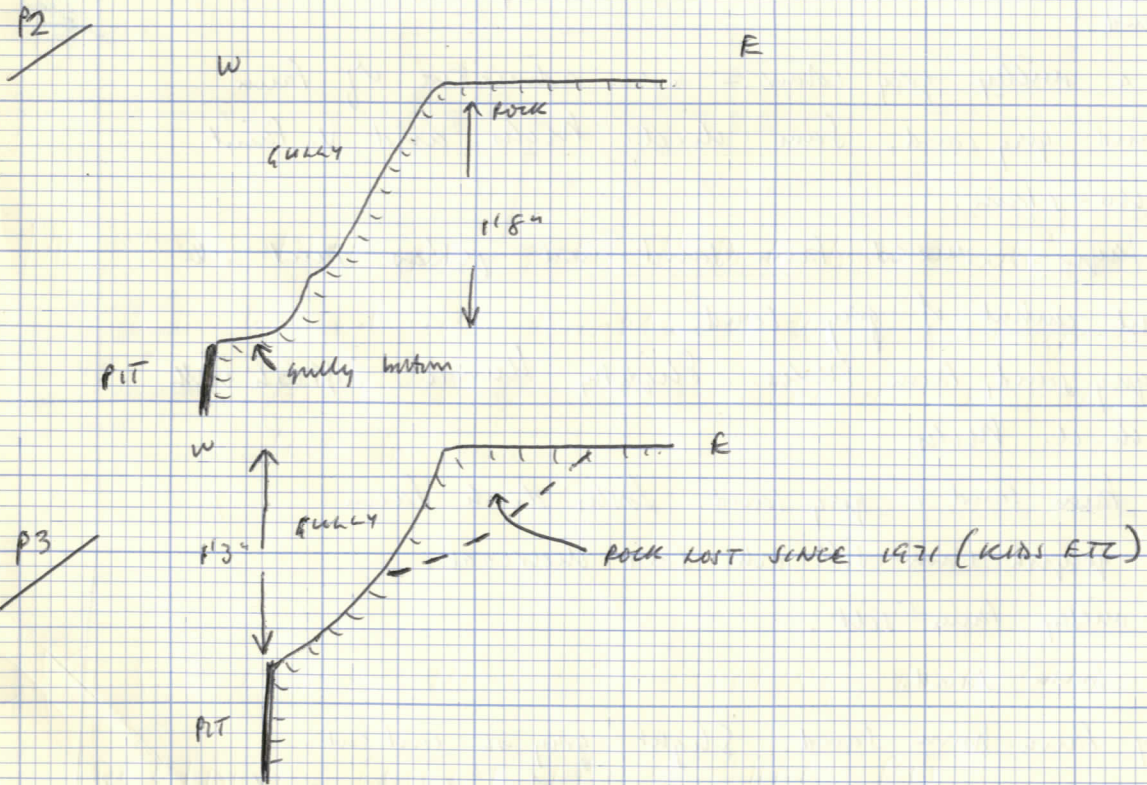 P2
W
E
ROCK
GULLY
1'8"
PIT
gully bottom
W
E
GULLY
P3
1'3"
ROCK LOST SINCE 1971 (KIDS ETC)
PIT